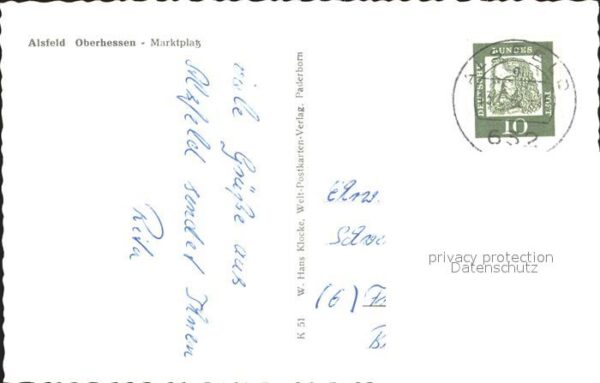 Alsfeld Oberhessen - Marktplatz
viele Grüße aus
Alsfeld sendet Ihnen
Rita
K 51 W. Hans Klocke, Welt-Postkarten-Verlag, Paderborn
DEUTSCHE BUNDES POST
10
(6)
privacy protection
Datenschutz